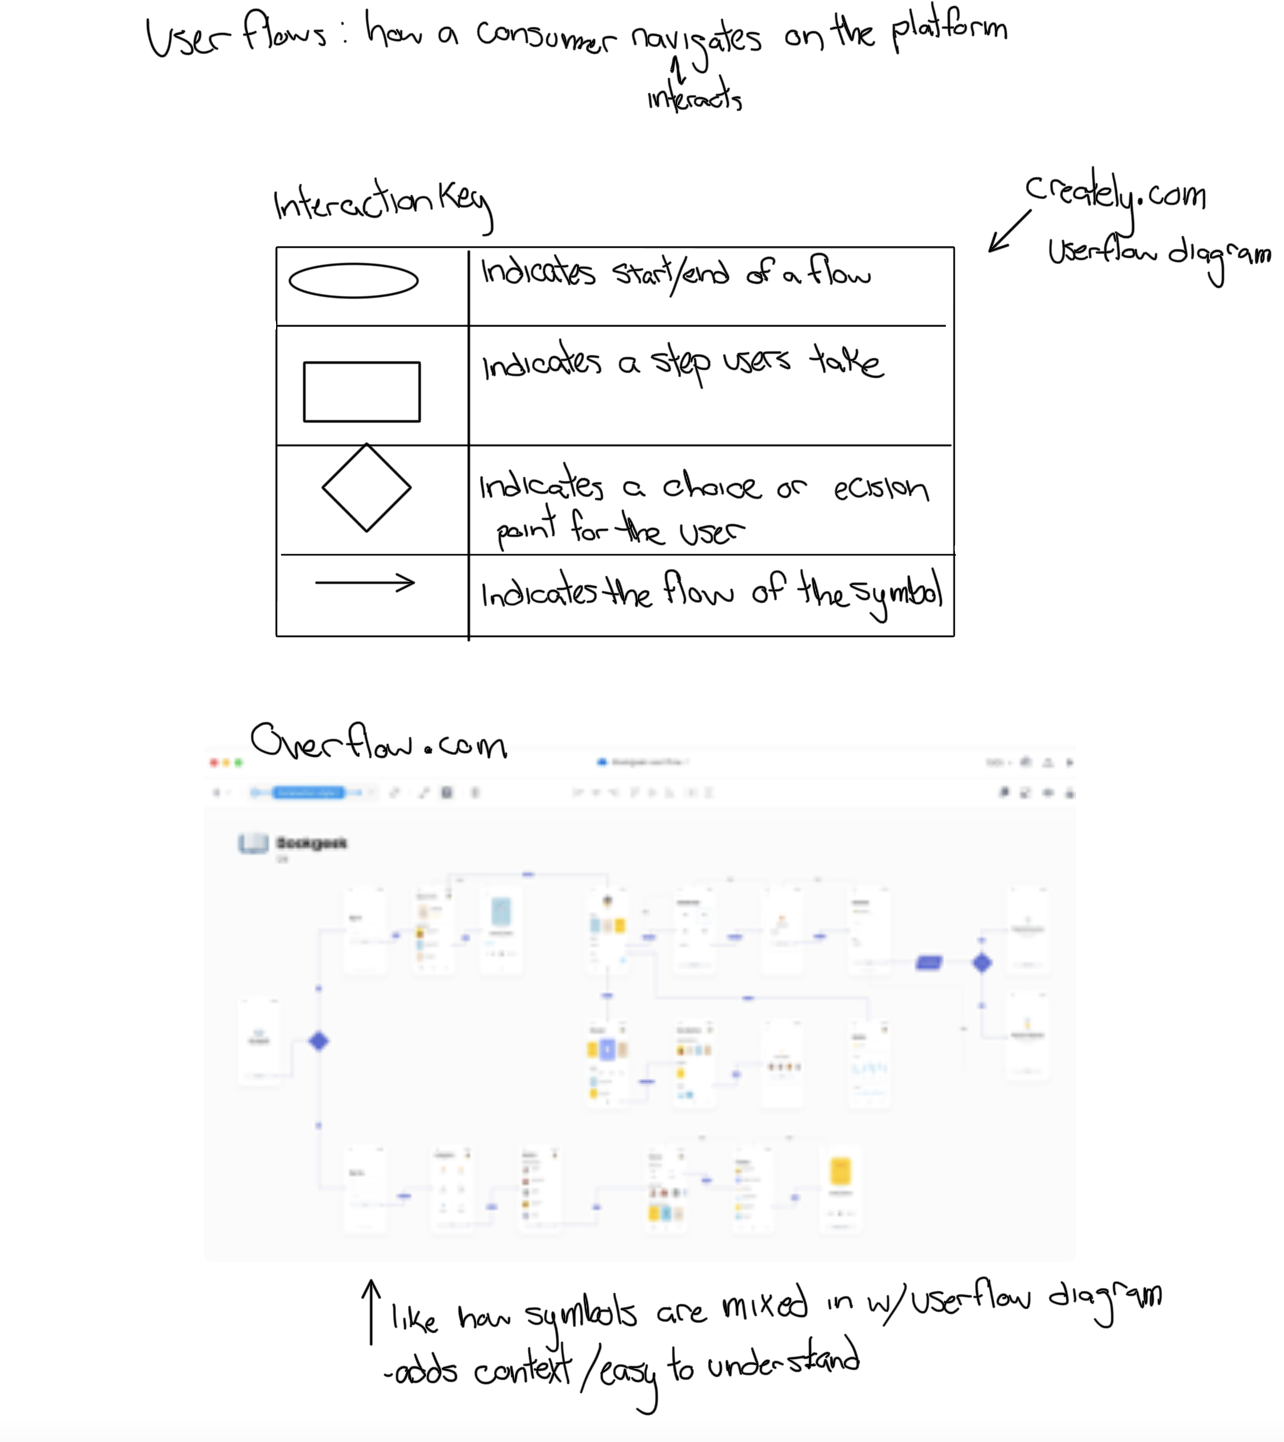 User flows: how a consumer navigates on the platform
interacts
Interaction Key
creately.com
Userflow diagram
Indicates start/end of a flow
Indicates a step users take
Indicates a choice or ecision
point for the user
Indicates the flow of the symbol
Overflow.com
Bookgeek
like how symbols are mixed in w/userflow diagram
-adds context/easy to understand